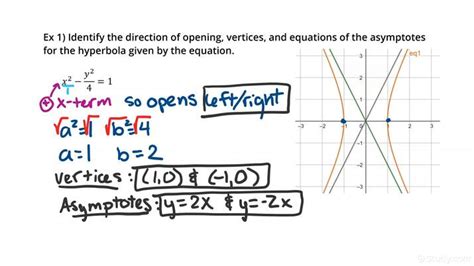 Ex 1) Identify the direction of opening, vertices, and equations of the asymptotes
for the hyperbola given by the equation.
x²/1 - y²/4 = 1
⊕ x-term so opens left/right
√a²=√1 √b²=√4
a=1 b=2
vertices: (1,0) & (-1,0)
Asymptotes: y=2x & y=-2x
eq1
3
2
1
-3 -2 -1 0 1 2 3
-1
-2
-3
Study.com